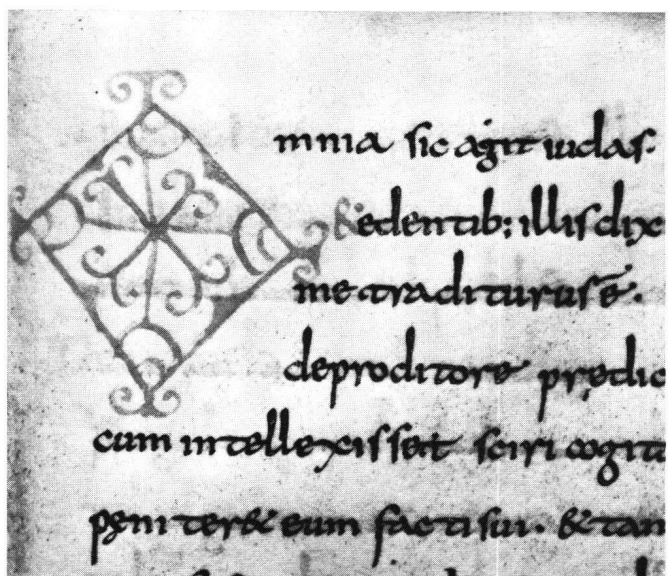 Omnia sic agit iudas.
&edentib; illis dix
me traditurus ē.
de proditore prędic
cum intellexisset sciri cogita
pęniter& eum facti sui. & tan